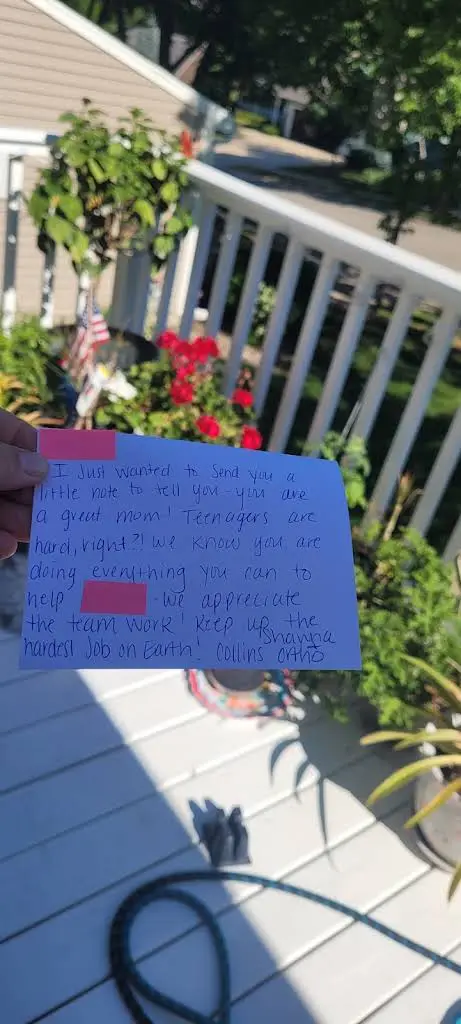 I Just wanted to send you a
little note to tell you - you are
a great mom! Teenagers are
hard, right?! We know you are
doing everything you can to
help - We appreciate
the team work! Keep up the
hardest Job on Earth! Shanna
Collins Ortho